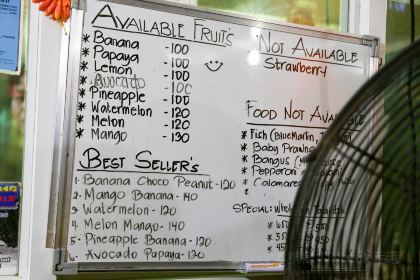 AVAILABLE FRUITS
* Banana - 100
* Papaya - 100
* Lemon - 100
* Avocado - 100
* Pineapple - 100
* Watermelon - 120
* Melon - 120
* Mango - 130
BEST SELLER'S
1. Banana Choco Peanut - 120
2. Mango Banana - 140
3. Watermelon - 120
4. Melon Mango - 140
5. Pineapple Banana - 120
6. Avocado Papaya - 120
NOT AVAILABLE
Strawberry
FOOD NOT AVA
* Fish (Blue Marlin,
* Baby Prawn
* Bongus
* Pepperoni
* Calamares
SPECIAL: